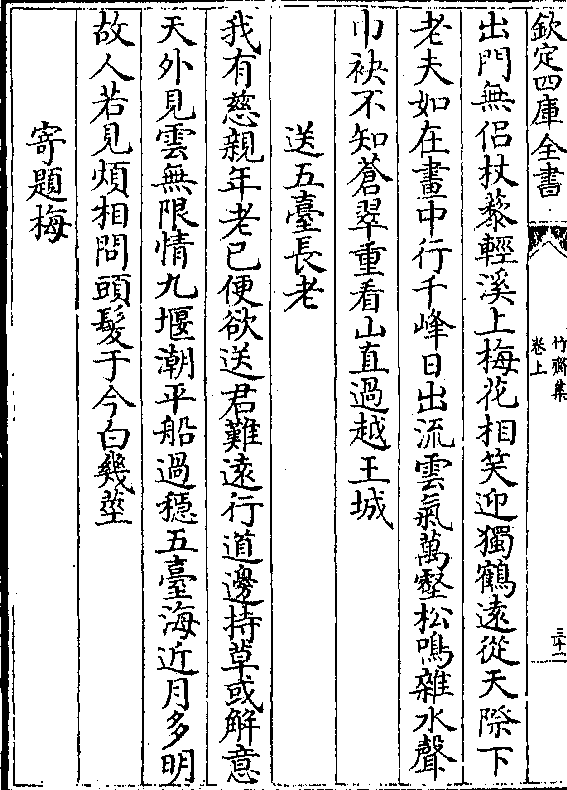 欽定四庫全書
竹齋集
卷上
三十二
出門無侣杖藜輕溪上梅花相笑迎獨鶴遠從天際下
老夫如在畫中行千峰日出流雲氣萬壑松鳴雜水聲
巾袂不知蒼翠重看山直過越王城
送五臺長老
我有慈親年老已便欲送君難遠行道邊持草或解意
天外見雲無限情九堰潮平船過穩五臺海近月多明
故人若見煩相問頭髮于今白幾莖
寄題梅